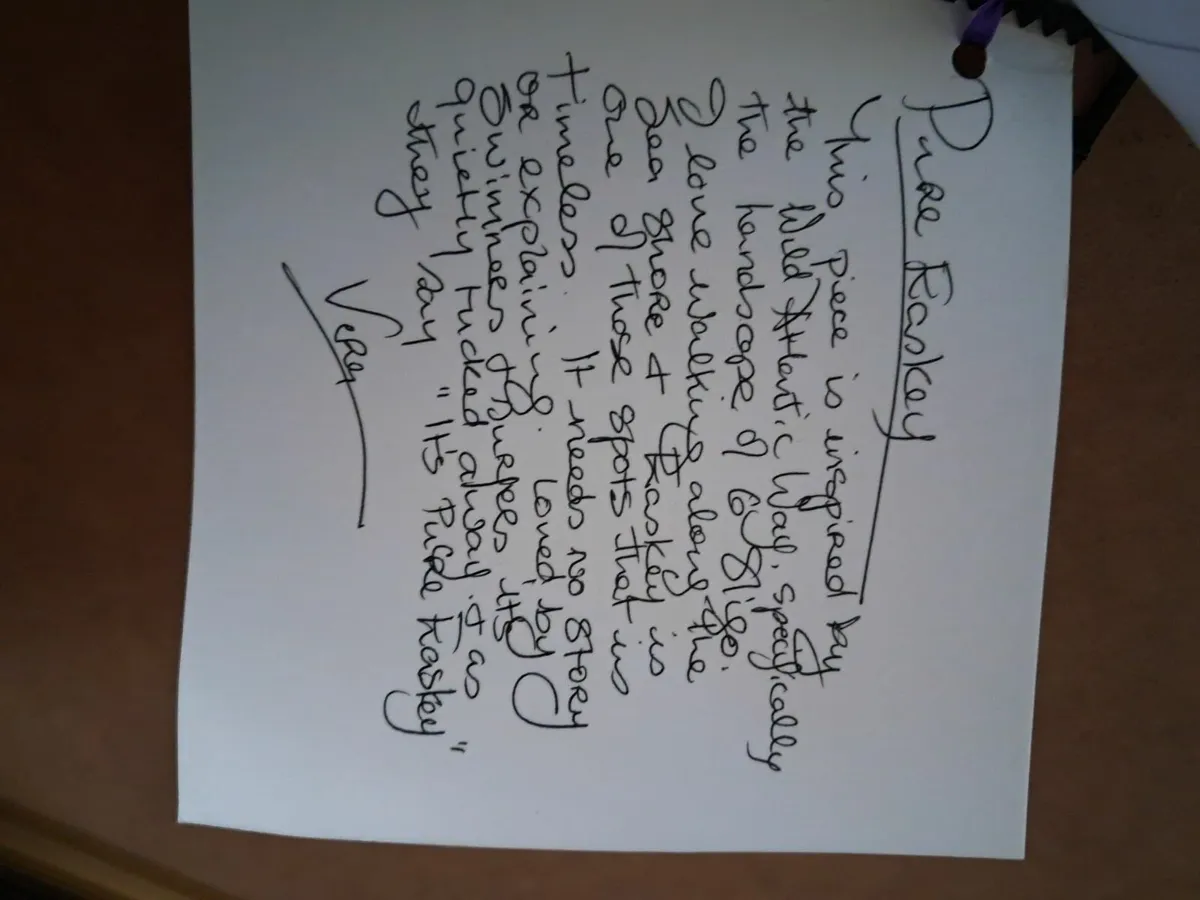 Pure Easkey
This piece is inspired by
the Wild Atlantic Way, specifically
the landscape of Co Sligo.
I love walking along the
Sea shore & Easkey is
one of those spots that is
timeless. It needs no story
or explaining. Loved by
Swimmers & Surfers its
quietly tucked away & as
they say "It's Pure Easkey"
Vera